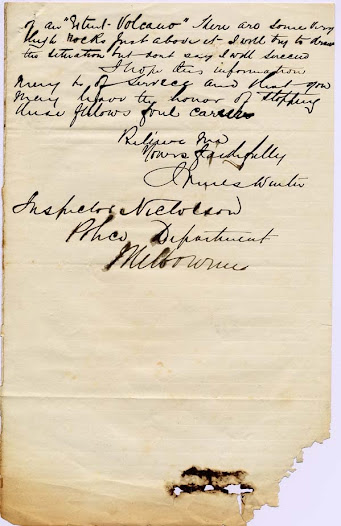 of an "Extinct Volcano" There are some very
high rocks just above it I will try to draw
the situation but dont say I will succeed
I hope this information
may be of service and that you
may have the honor of stopping
these fellows foul career
Believe me
Yours faithfully
James Winter
Inspector Nicholson
Police Department
Melbourne